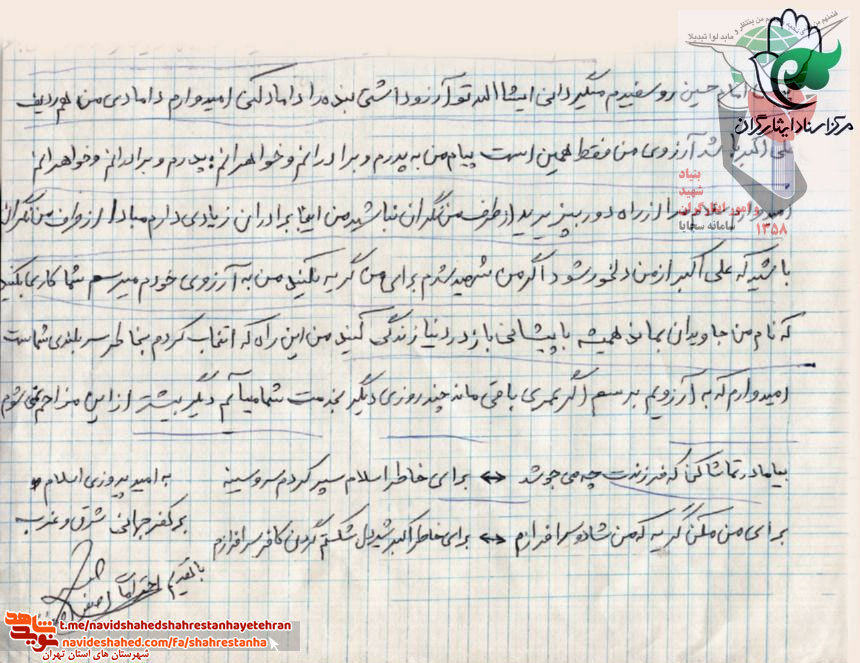 امام حسین روسفیدم میگیردانی ایشاا... تو آرزو داشتی بنده را داماد کنی امیدوارم دامادی من هم ردیف
علی اکبر باشد آرزوی من فقط همین است پیام من به پدرم و برادرانم و خواهرانم : پدرم و برادرانم و خواهرانم
امیدوارم سلام مرا از راه دور بپزیرید از طرف من نگران نباشید من اینجا برادران زیادی دارم مبادا از طرف من نگران
باشید که علی اکبر از من دلخور شود اگر من شهید شدم برای من گریه نکنید من به آرزوی خودم میرسم شما کاری بکنید
که نام من جاویدان بماند همیشه با پیشانی باز در دنیا زندگی کنید من این راه که انتخاب کردم بخاطر سربلندی شماست
امیدوارم که به آرزویم برسم اگر عمری باقی ماند چند روزی دیگر بخدمت شما میآیم دیگر بیشتر از این مزاحم نمی شوم
بیا مادر تماشا کن که فرزندت چه می جوشد ↔ برای خاطر اسلام سپر کردم سر و سینه
برای من مکن گریه که من شاد و سرافرازم ↔ برای خاطر اکبر شید دل شکستم گردن کافر سرافرازم
به امید پیروزی اسلام
بر کفر جهانی شرق و غرب
با تقدیم احترامات
مرکز اسناد ایثارگران
بنیاد
شهید
و امور ایثارگران
سامانه سجایا
۱۳۵۸
نوید شاهد
t.me/navidshahedshahrestanhayetehran
navideshahed.com/fa/shahrestanha
شهرستان های استان تهران